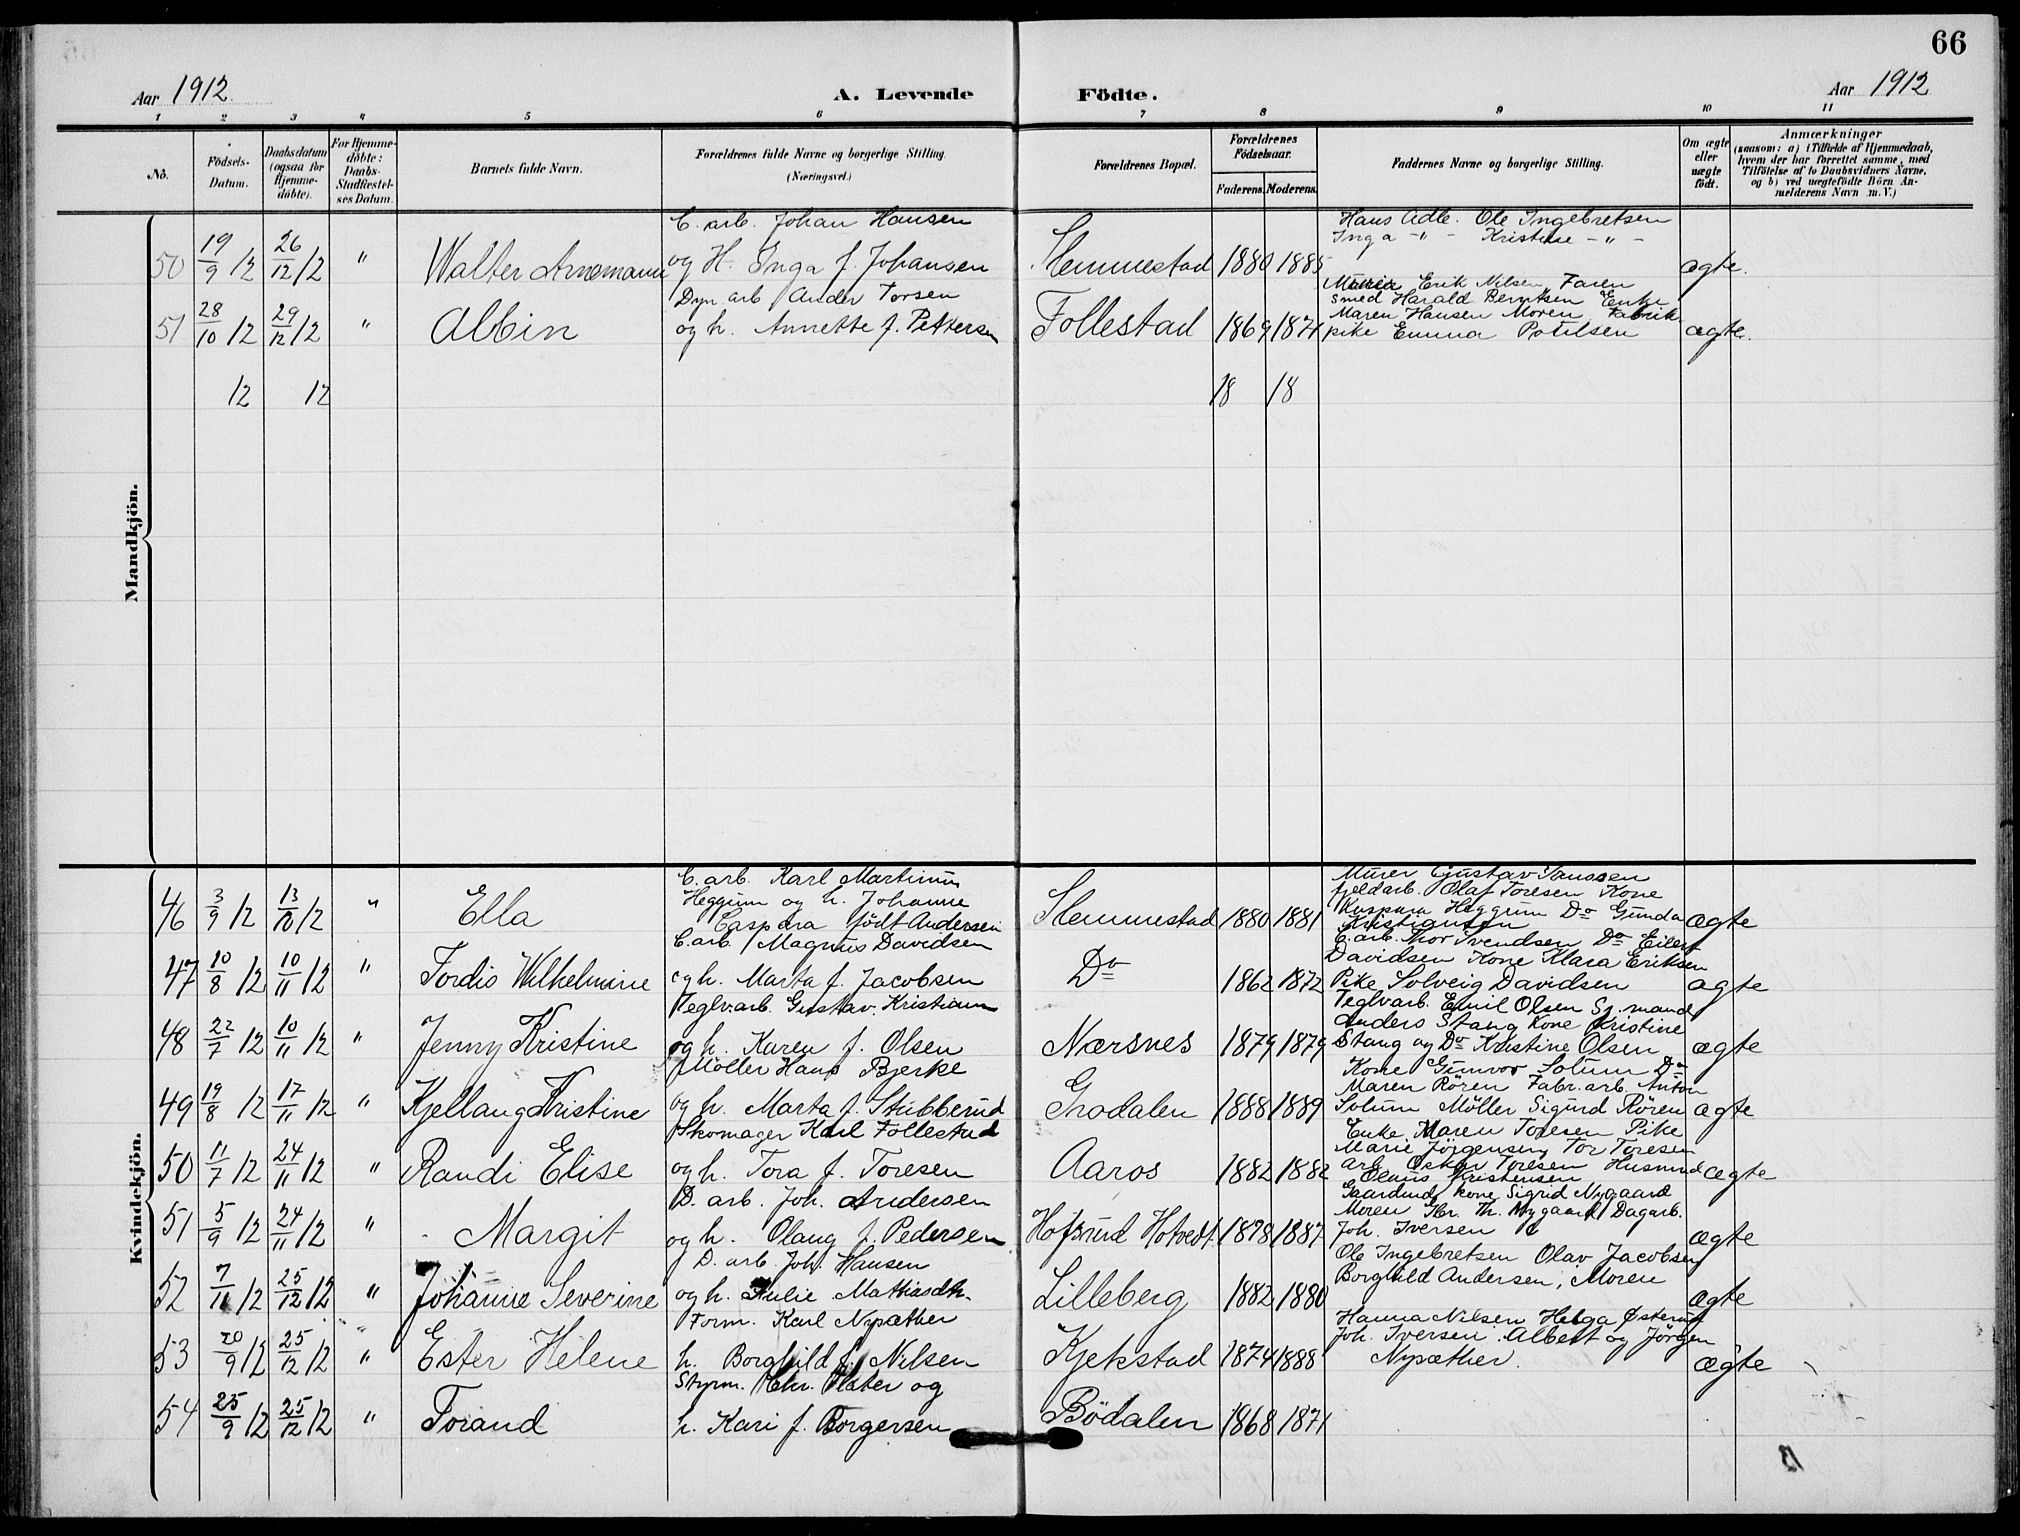 66
Aar 1912
A. Levende Födte.
Aar 1912
1 2 3 4 5 6 7 8 9 10 11
Nö.
Födsels-Datum.
Daabsdatum (ogsaa for Hjemme-döbte).
For Hjemme-döbte: Daabs-Stadfæstel-ses Datum.
Barnets fulde Navn.
Forældrenes fulde Navne og borgerlige Stilling. (Næringsvei.)
Forældrenes Bopæl.
Forældrenes Födselsaar.
Faderens. Moderens.
Faddernes Navne og borgerlige Stilling.
Om ægte eller uægte födt.
Anmærkninger
(saasom: a) i Tilfælde af Hjemmedaab,
hvem der har forrettet samme, med
Tilföielse af to Daabsvidners Navne,
og b) ved uægtefödte Börn An-
melderens Navn m. V.)
Mandkjön.
C. arb. Johan Hansen Hans Adle. Ole Ingebretsen
Inga -"- Kristine -"-
50 19/9 12 26/12 12 " Walter Arnemann og H. Inga f. Johansen Slemmestad 1880 1885 ægte.
Dyn arb Ander Torsen Erik Nilsen, Faren
smed Harald Berntsen Enke
Maren Hansen Moren Fabrik
51 28/10 12 29/12 12 " Albin og h. Annette f. Pettersen Follestad 1869 1871 pike Emma ægte.
12 12 18 18
Kvindekjön.
C. arb. Karl Martinius Murer Gustav
Heggum og h. Johanne fjeldarb. Olaf Toresen Kone
46 3/9 12 13/10 12 " Ella Caspara födt Andersen Slemmestad 1880 1881 Kaspara Heggum Do Gunda Kristiansen ægte
C. arb. Magnus Davidsen C. arb. Thor Svendsen Do Eilert
Davidsen Kone Klara Eriksen
47 10/8 12 10/11 12 " Tordis Wilhelmine og h. Marta f. Jacobsen Do 1862 1872 Pike Solveig Davidsen ægte
Teglv.arb. Gustav Kristians Teglvarb. Emil Olsen Sj. mand
Anders Stang Kone Kristine
48 22/7 12 10/11 12 " Jenny Kristine og h. Karen f. Olsen Nærsnes 1879 1879 Stang og Do Kristine Olsen ægte
Möller Hans Bjerke Kone Gunvor Solum Do
Maren Rören Fabr. arb. Anton
49 19/8 12 17/11 12 " Kjellaug Kristine og h. Marta f. Stubberud Grodalen 1888 1889 Solum Möller Sigurd Rören ægte
Skomager Karl Follestad Enke Maren Toresen Pike
Marie Jörgensen, Tor Toresen
50 11/7 12 24/11 12 " Randi Elise og h. Tora f. Toresen Aaros 1882 1882 arb. Oskar Toresen Husmand ægte
Olaus Kristensen
D. arb. Joh. Andersen Gaardmd, kone Sigrid Nygaard
Moren Kr. Th. Nygaard Dagarb.
51 5/9 12 24/11 12 " Margit og h. Olaug f. Pedersen Hofsrud Hotvedt. 1878 1887 Joh. Iversen ægte
D. arb. Joh. Hansen Ole Ingebretsen Olav Jacobsen
52 7/11 12 25/12 12 " Johanne Severine og h. Julie Mathiasdtr. Lilleberg 1882 1880 Borghild Andersen, Moren ægte
Form. Karl Nypæther Hanna Nilsen Helga Østerud
Joh. Iversen. Albert og Jörgen
53 20/9 12 25/12 12 " Ester Helene h. Borghild f. Nilsen Kjekstad 1874 1888 Nypæther. ægte
Styrm. Chr. Plater og
54 25/9 12 25/12 12 " Torand h. Kari f. Borgersen Bödalen 1868 1871